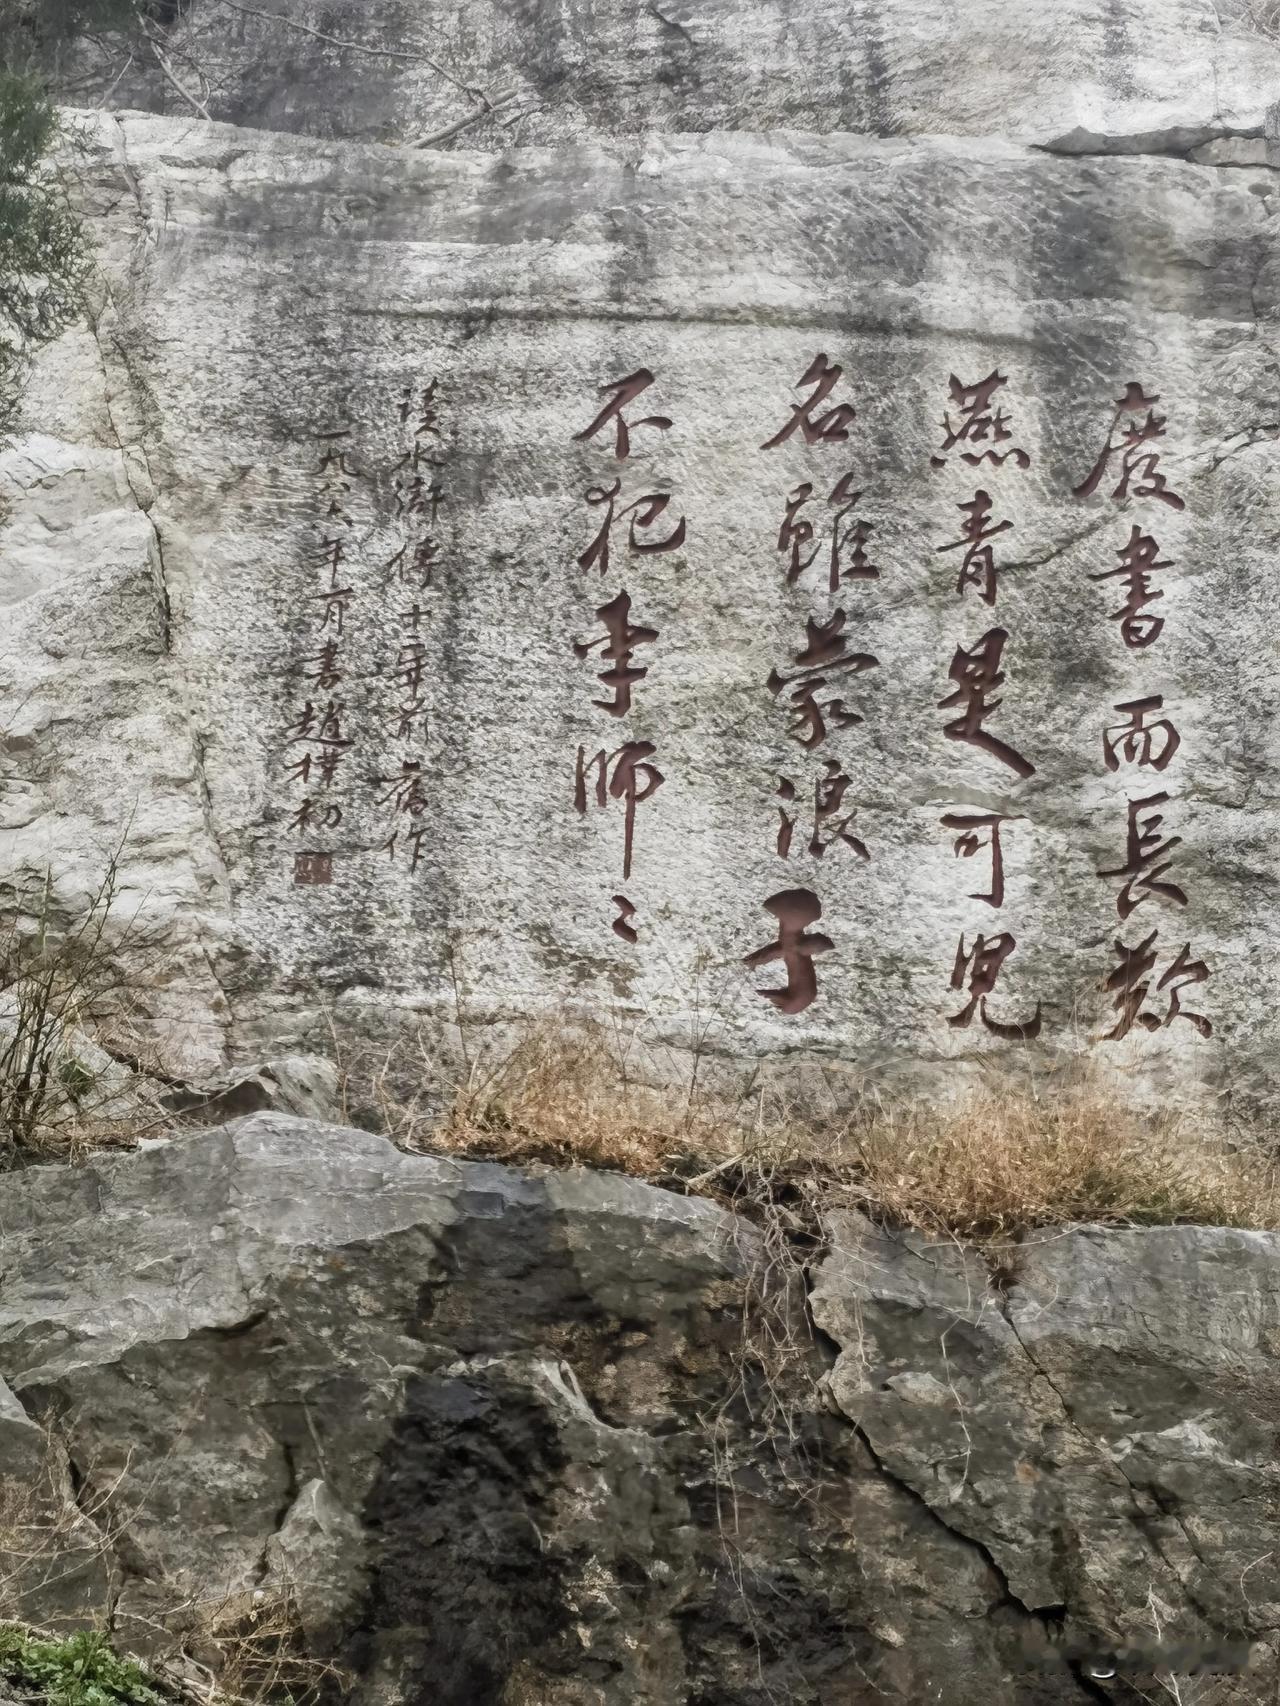 废書而長歎
燕青是可兒
名雖蒙浪子
不犯李師〻
读水滸傳十二年前舊作
一九八六年一月書趙樸初